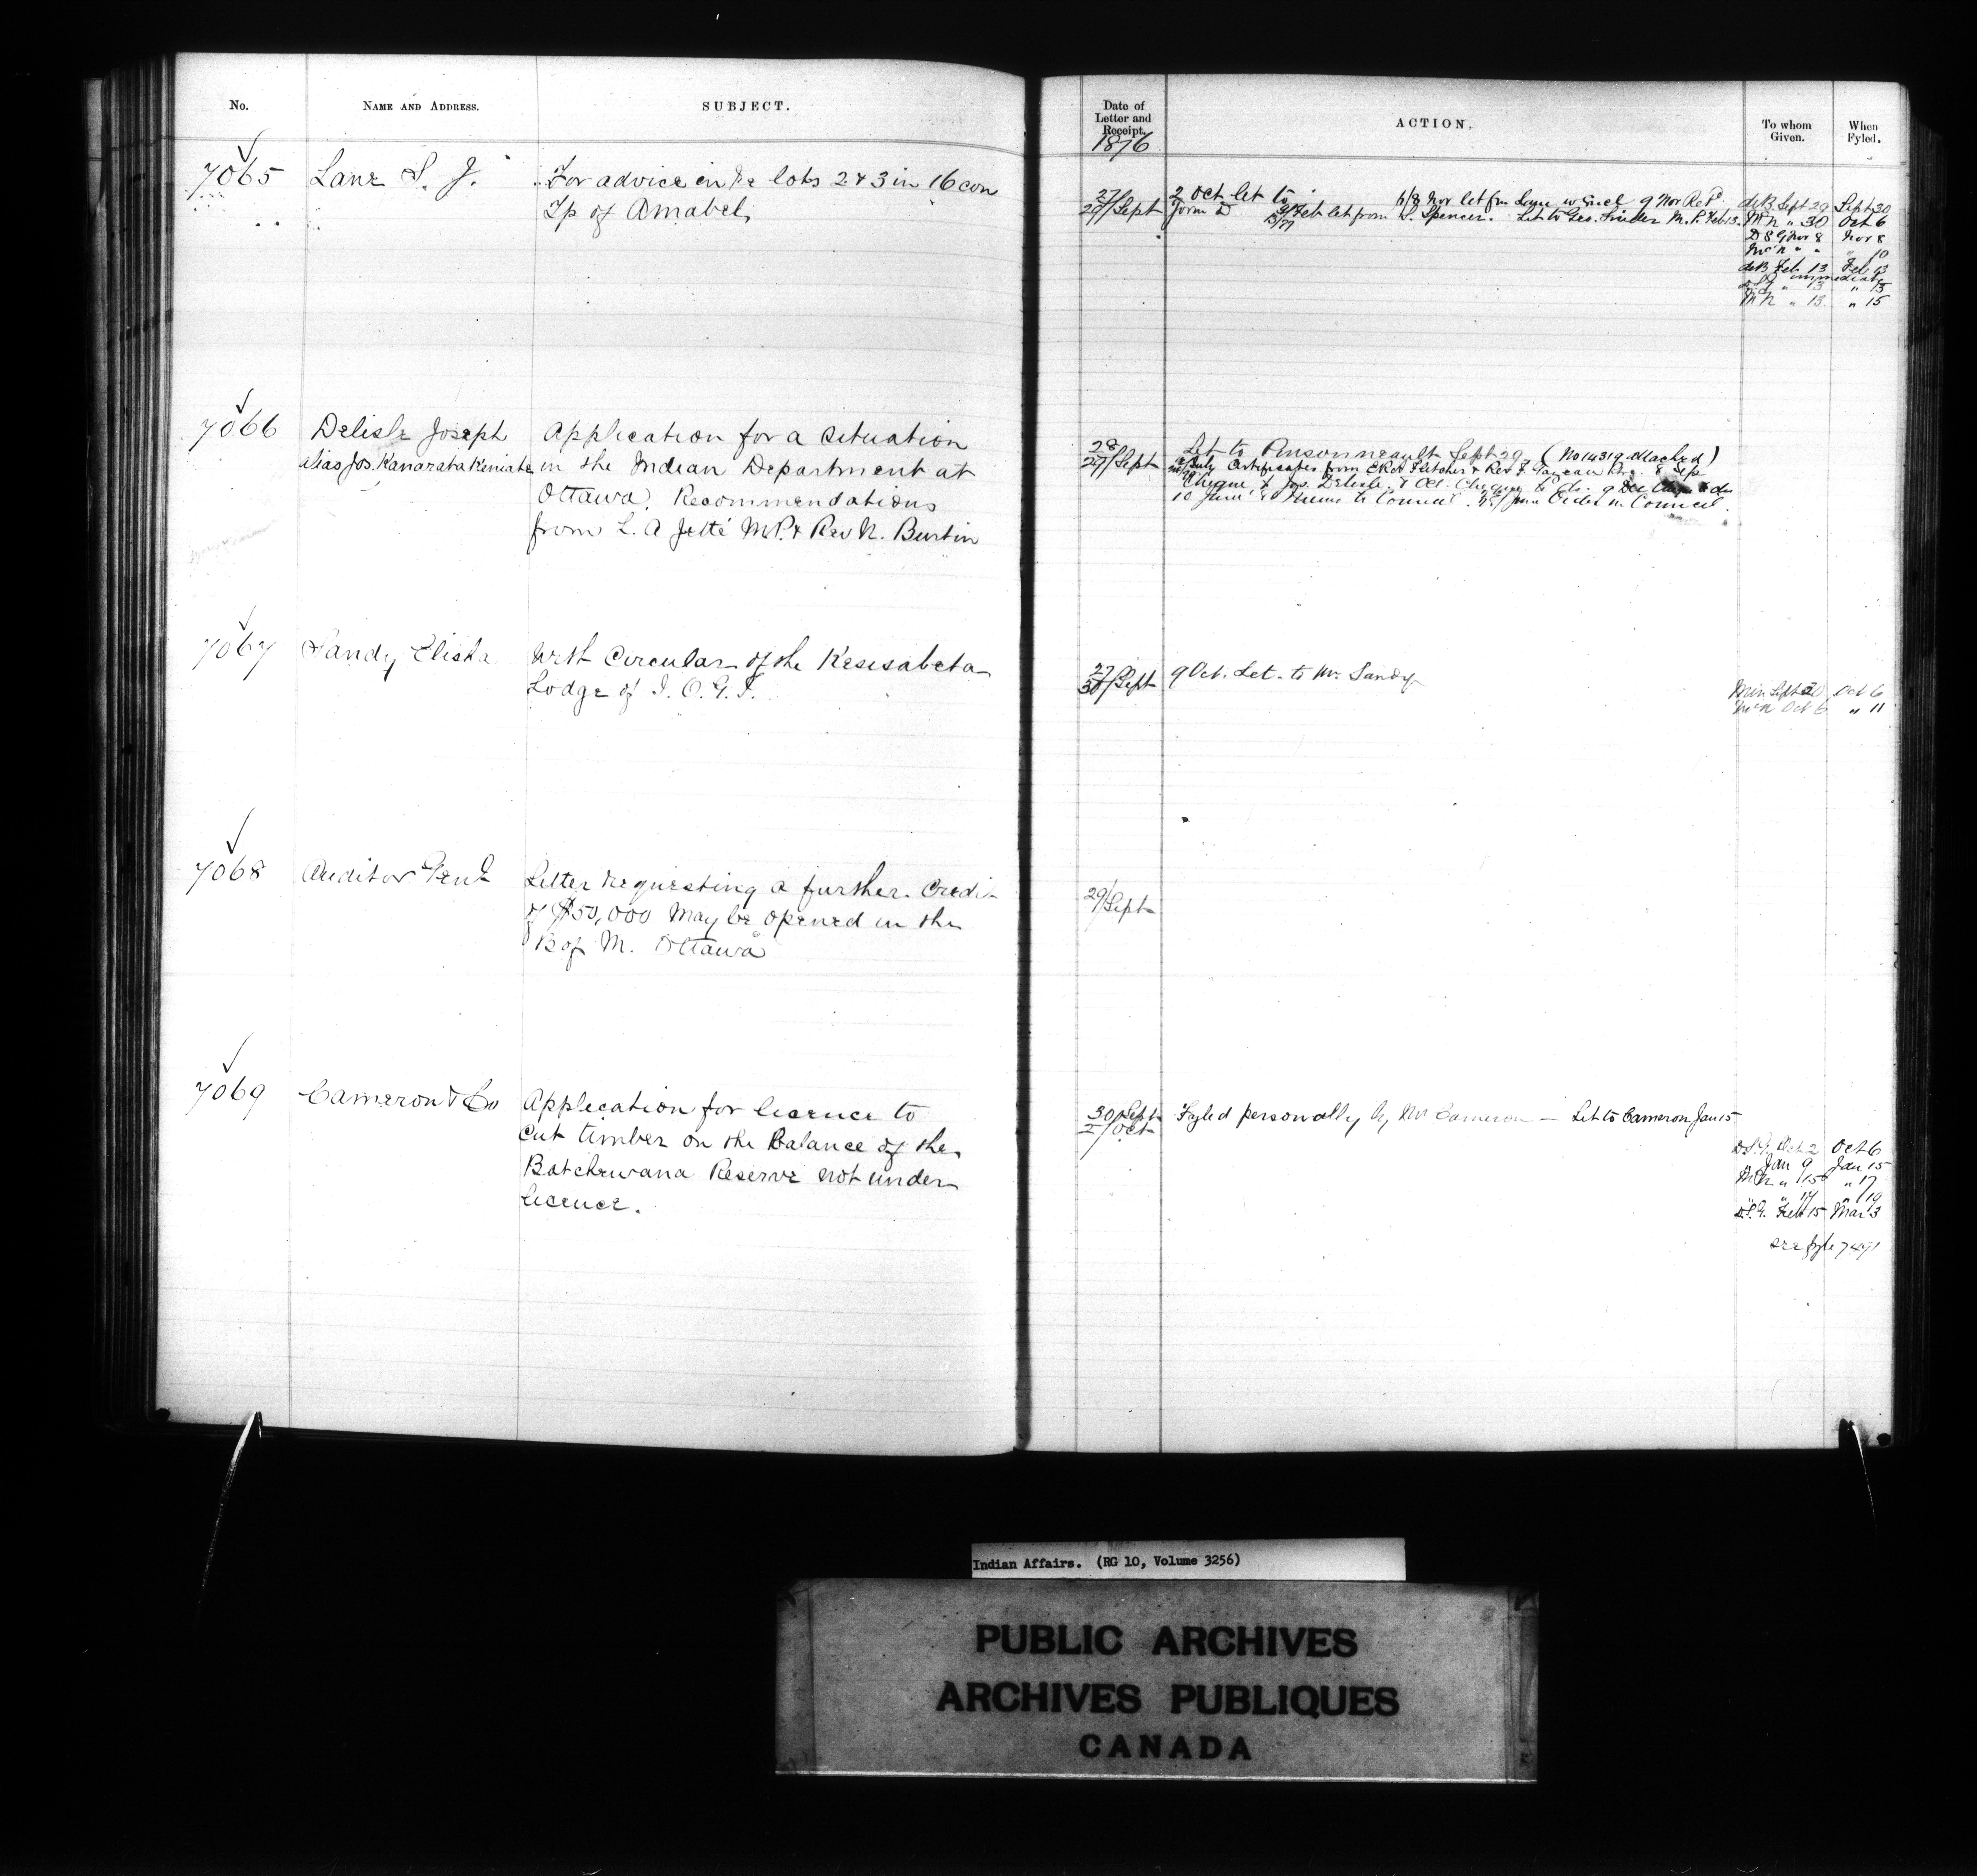 No.
NAME AND ADDRESS.
SUBJECT.
7065
Lane S. J.
For advice in re lots 2 & 3 in 16 con
Tp of Amabel
7066
Delisle Joseph
alias Jos. Kanarata Keniate
Application for a situation
in the Indian Department at
Ottawa. Recommendations
from L. A Jetté M.P. & Rev N. Burtin
7067
Sandy Elisha
With Circular of the Kesisabeta
Lodge of I. O. G. T.
7068
Auditor Genl
Letter requesting a further Credit
of $50,000 may be opened in the
B of M. Ottawa
7069
Cameron & Co
Application for licence to
cut timber on the Balance of the
Batchewana Reserve not under
licence.
Date of
Letter and
Receipt.
ACTION.
To whom
Given.
When
Fyled.
1876
27/
29/Sept
2 Oct let to
form D
8 Nov let fm Lane w encl 9 Nov Rep.
Feb let from L. Spencer. Let to Geo. M. P. Feb 13.
deB. Sept 29 Sept 30
McN " 30 Oct 6
D S G Nov 8 Nov 8
McN " " " 10
deB Feb. 13 Feb 13
immediate
" 13 " 13
McN " 13 " 15
28/
29/Sept
Let to Pinsonneault Sept 29 (No 14319 attached)
July Certificates from E R A Fletcher & Rev F. 8 Sep
Cheque to Jos. Delisle. 8 Oct. Cheque to do. 9 Dec Cheque to do
10 June Memo to Council. June Order in Council.
27/
30/Sept
9 Oct. Let. to Mr. Sandy
Min Sept 30 Oct 6
McN Oct 6 " 11
29/Sept
30 Sept
2/Oct
Fyled personally by Mr Cameron — Let to Cameron Jan 15
D.S.G. Oct 2 Oct 6
" Jan 9 Jan 15
McN " 15 " 17
" " 17 " 19
D.S.G. Feb 15 Mar 3
see fyle 7471
Indian Affairs. (RG 10, Volume 3256)
PUBLIC ARCHIVES
ARCHIVES PUBLIQUES
CANADA